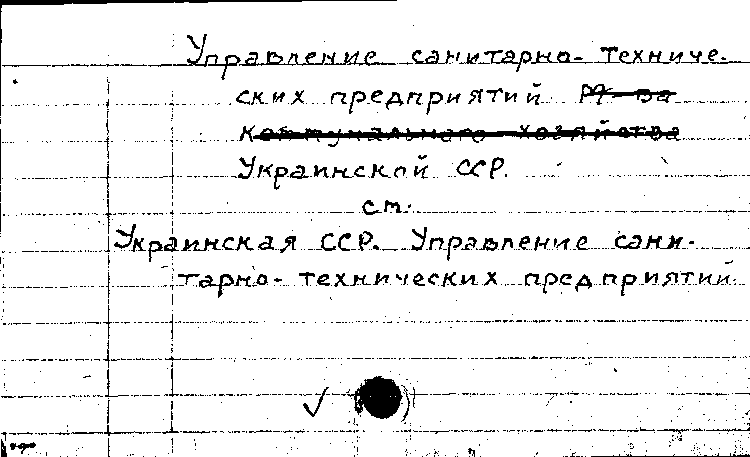 Управление санитарно-техниче-
ских предприятий
коммунального хозяйства
Украинской ССР.
см.
Украинская ССР. Управление сани-
тарно-технических предприятий.